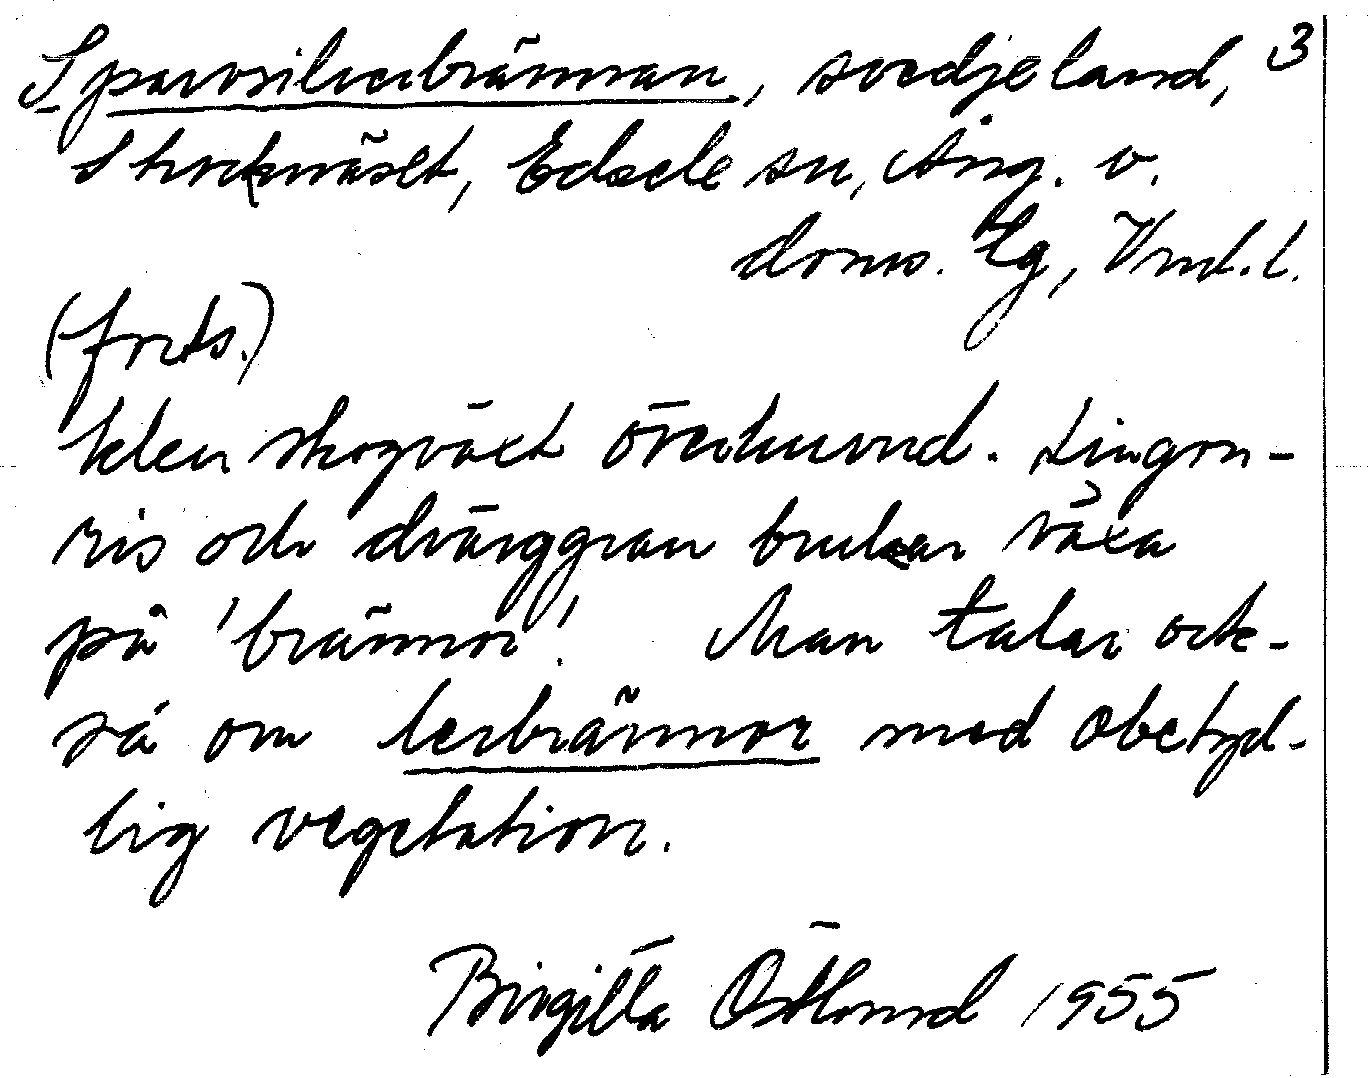 Sparvsilverbrännan, svedjeland, 3
Stocknäset, Edsele sn, Ång. v.
doms. lg, Vml. l.
(forts.)
klen skogväxt överhuvud. Lingon-
ris och dvärggran brukar växa
på 'brännor'. Man talar ock-
så om lerbrännor med obetyd-
lig vegetation.
Birgitta Östlund 1955